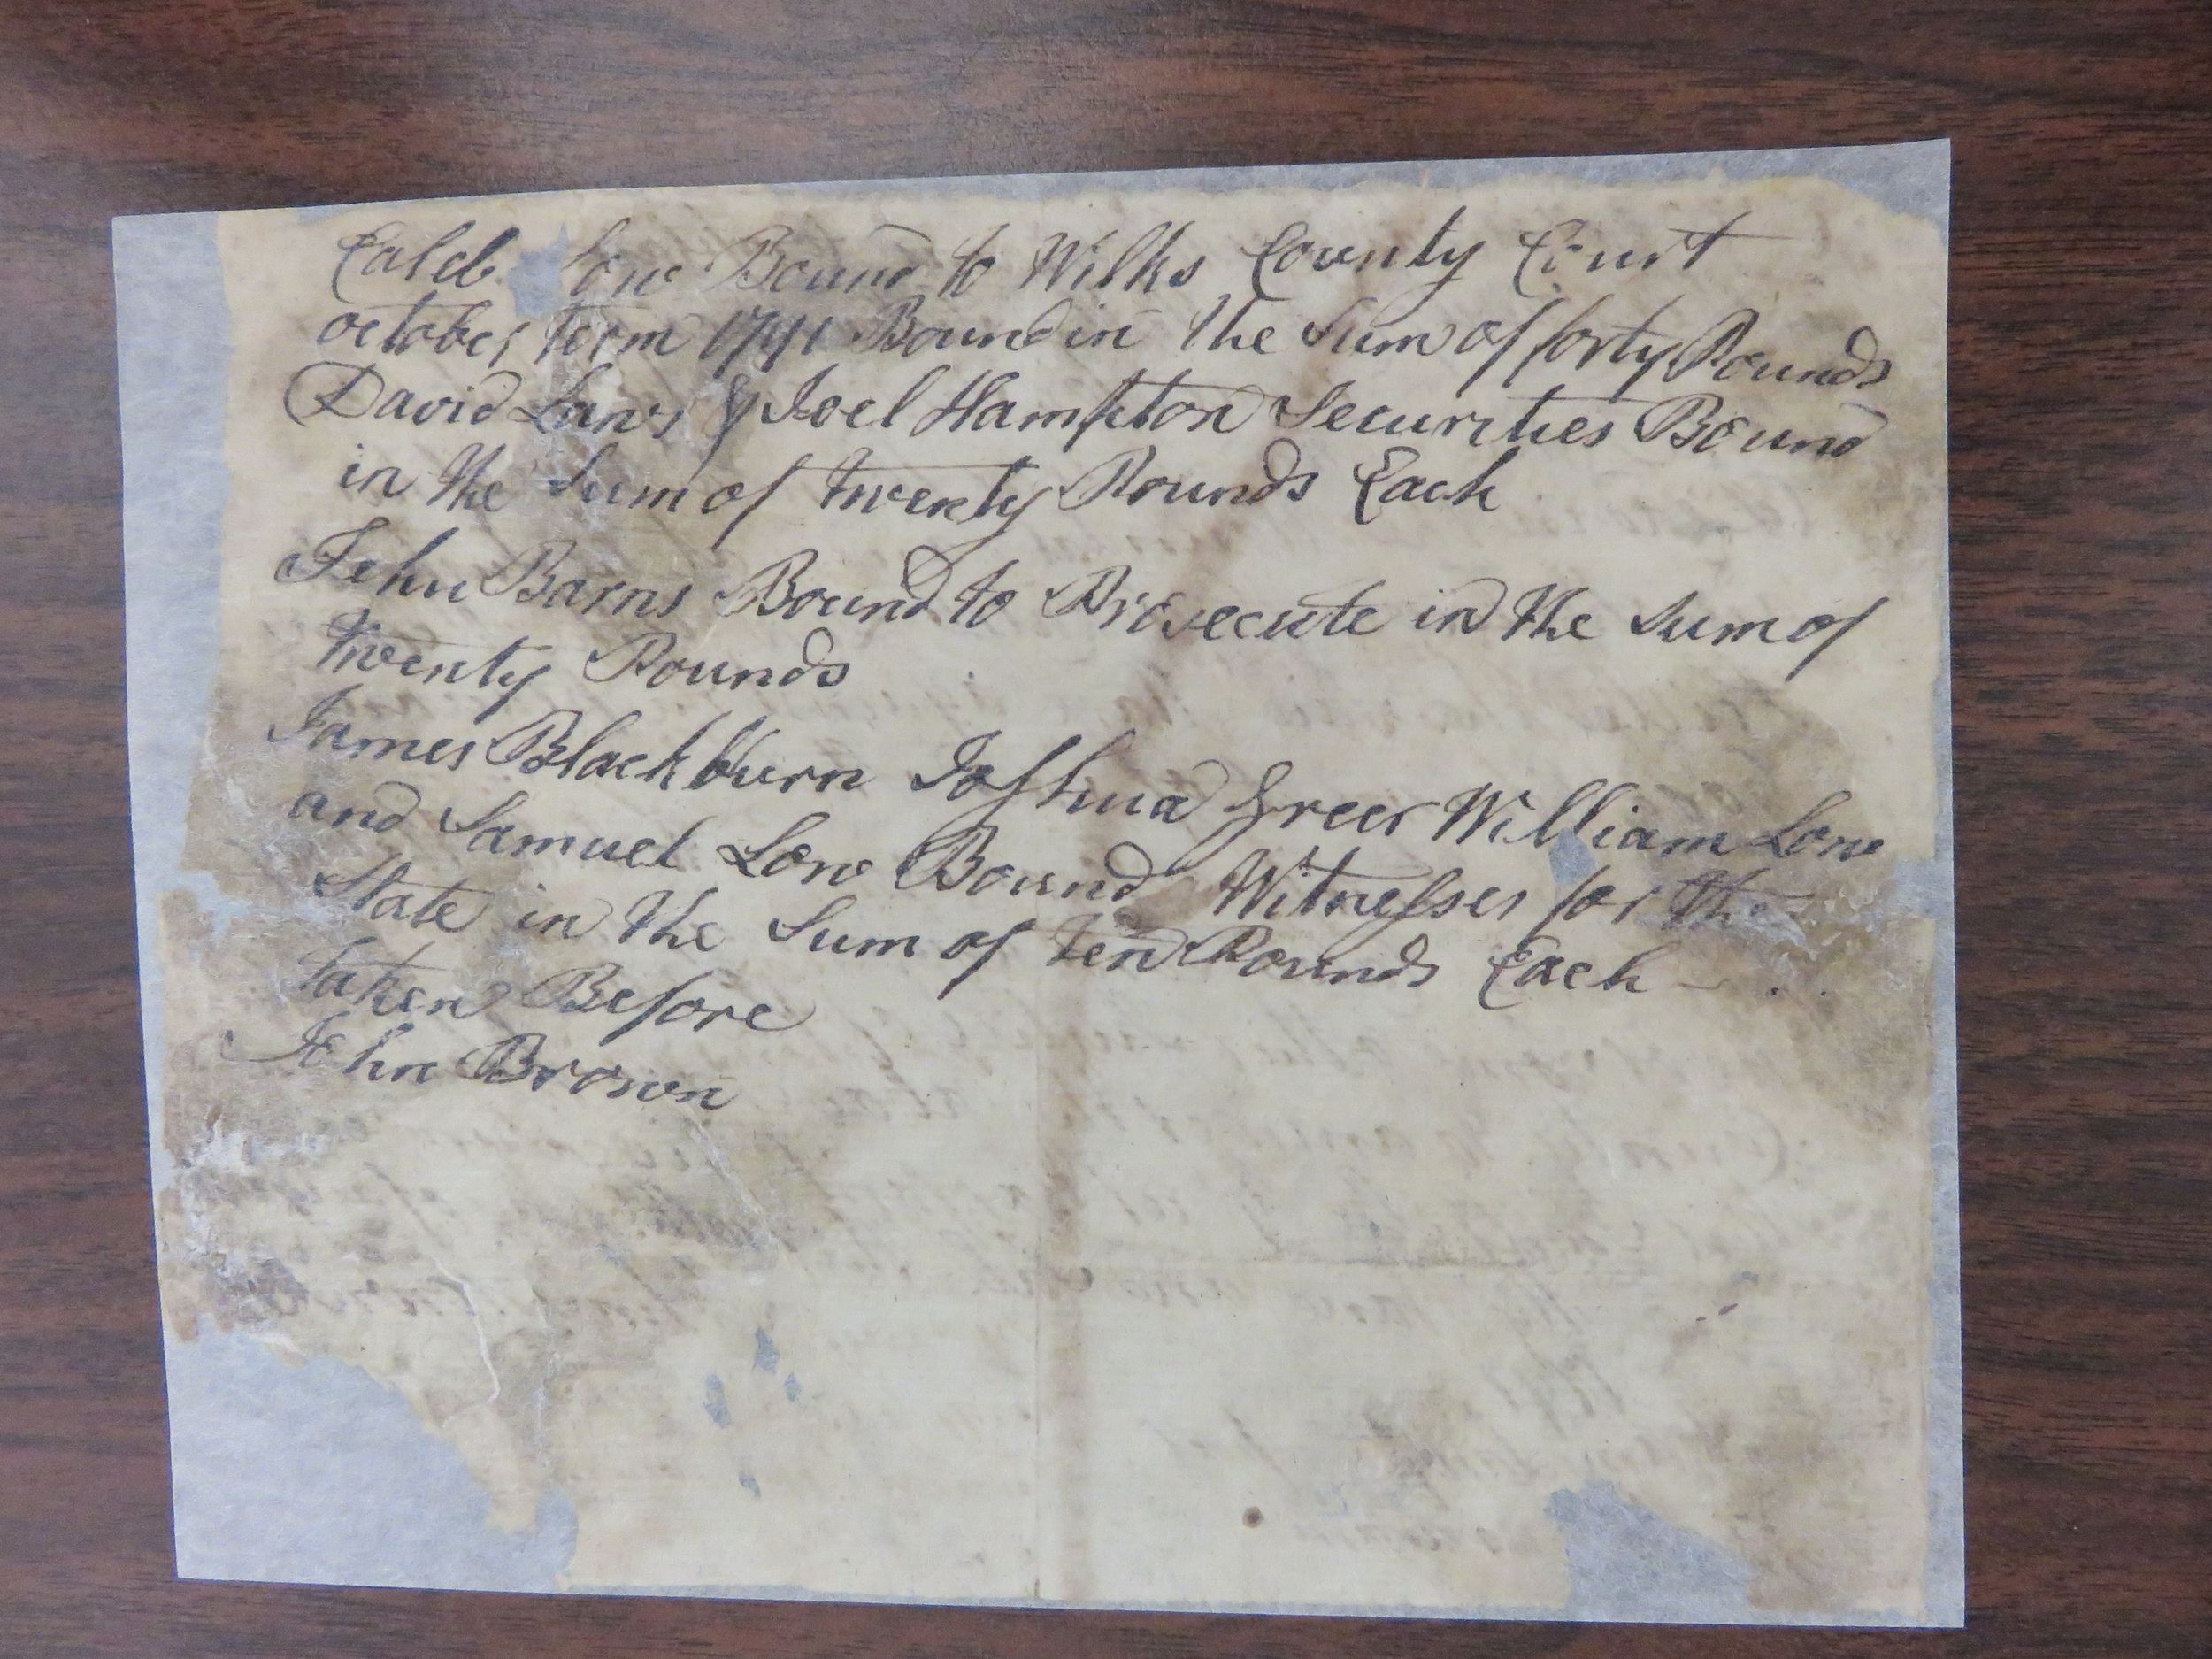 Caleb Low Bound to Wilks County Court
october term 1791 Bound in the Sum of forty Pounds
David Laws & Joel Hampton Securities Bound
in the Sum of twenty Pounds Each
John Barns Bound to Prosecute in the Sum of
twenty Pounds
James Blackburn Joshua Greer William Low
and Samuel Low Bound Witnesses for the
State in the Sum of ten Pounds Each
taken Before
John Brown